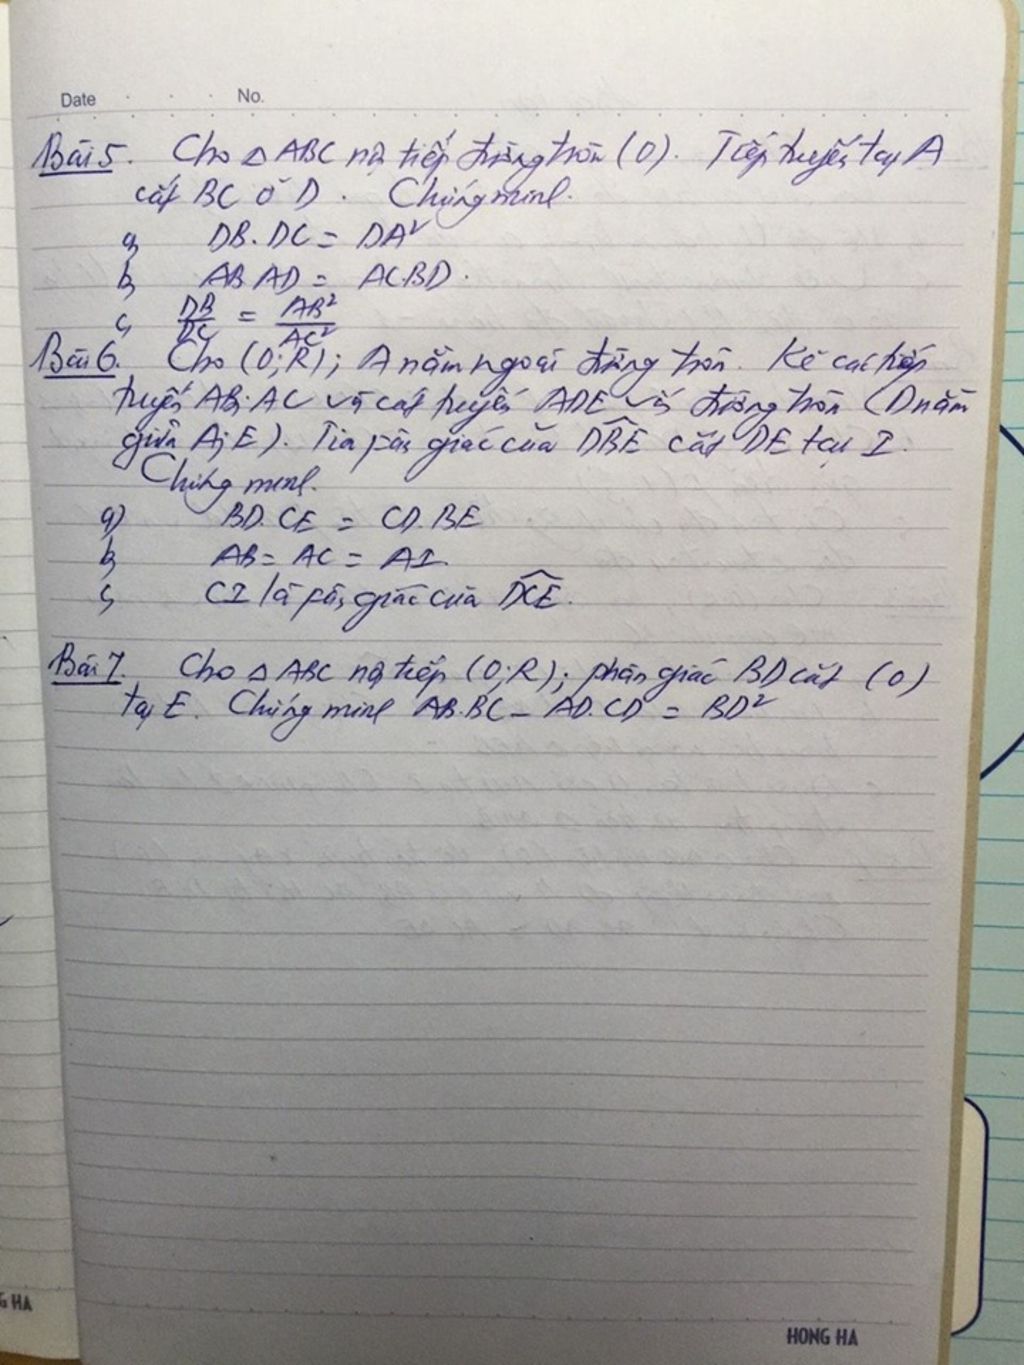 Date No.
Bài 5. Cho △ABC nội tiếp đường tròn (O). Tiếp tuyến tại A
cắt BC ở D. Chứng minh.
a, DB.DC = DA²
b, AB.AD = AC.BD.
c, DB/DC = AB²/AC²
Bài 6. Cho (O;R); A nằm ngoài đường tròn. Kẻ các tiếp
tuyến AB; AC và cát tuyến ADE với đường tròn (D nằm
giữa A; E). Tia phân giác của DBE cắt DE tại I.
Chứng minh.
a) BD.CE = CD.BE
b, AB = AC = AI.
c, CI là phân giác của DCE.
Bài 7. Cho △ABC nội tiếp (O;R); phân giác BD cắt (O)
tại E. Chứng minh AB.BC - AD.CD = BD²
G HA
HONG HA